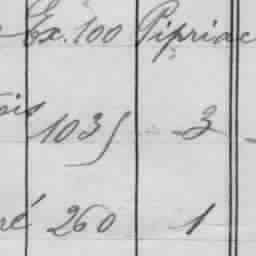 Ex. 100 Pipriac
ois 1035 3
ré 260 1